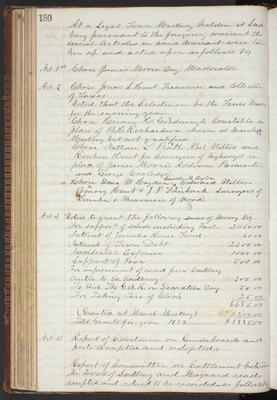 180
At a Legal Town Meeting holden at Sud
bury pursuant to the foregoing warrant the
several Articles in said Warrant were ta
ken up and acted upon as follows Viz
Art 1st Chose James Moore Esq Moderator
Art. 2 Chose Jonas S Hunt Treasurer and Collector
of Taxes
Voted that the Selectmen be the Fence View
ers for the ensuing year
Chose Hiram H. Goodnough Constable in
place of chosen at March
Meeting but not qualified
Chose Nathan L Pratt, Abel Willis and
Reuben Hunt for Surveyors of highways in
place of James Moore,
and George Goodnow
Chose Dana W. Hayden, Edward Willis
Emory Hunt & Surveyors of
Lumber & Measurers of Wood
Art 3 Voted to grant the following sums of Money Viz.
For support of schools including fuel 2450 00
Interest of Fund 60 00
Interest of Town Debt 2300 00
Incidental Expenses 1000 00
Support of Poor 500 00
For improvement of road from Sudbury
Centre to So. Sudbury 300 00
To Aid the G.A.R. on Decoration Day 50 00
For Taking Care of Clock 25 00
(Granted at March Meeting)
Total Grants for year 1872
Art 11 Report of Selectmen on Guideboards and
posts accepted and adopted
Report of Committee on Settlement between
the Towns of Sudbury and Maynard read,
accepted and voted to be recorded as follows